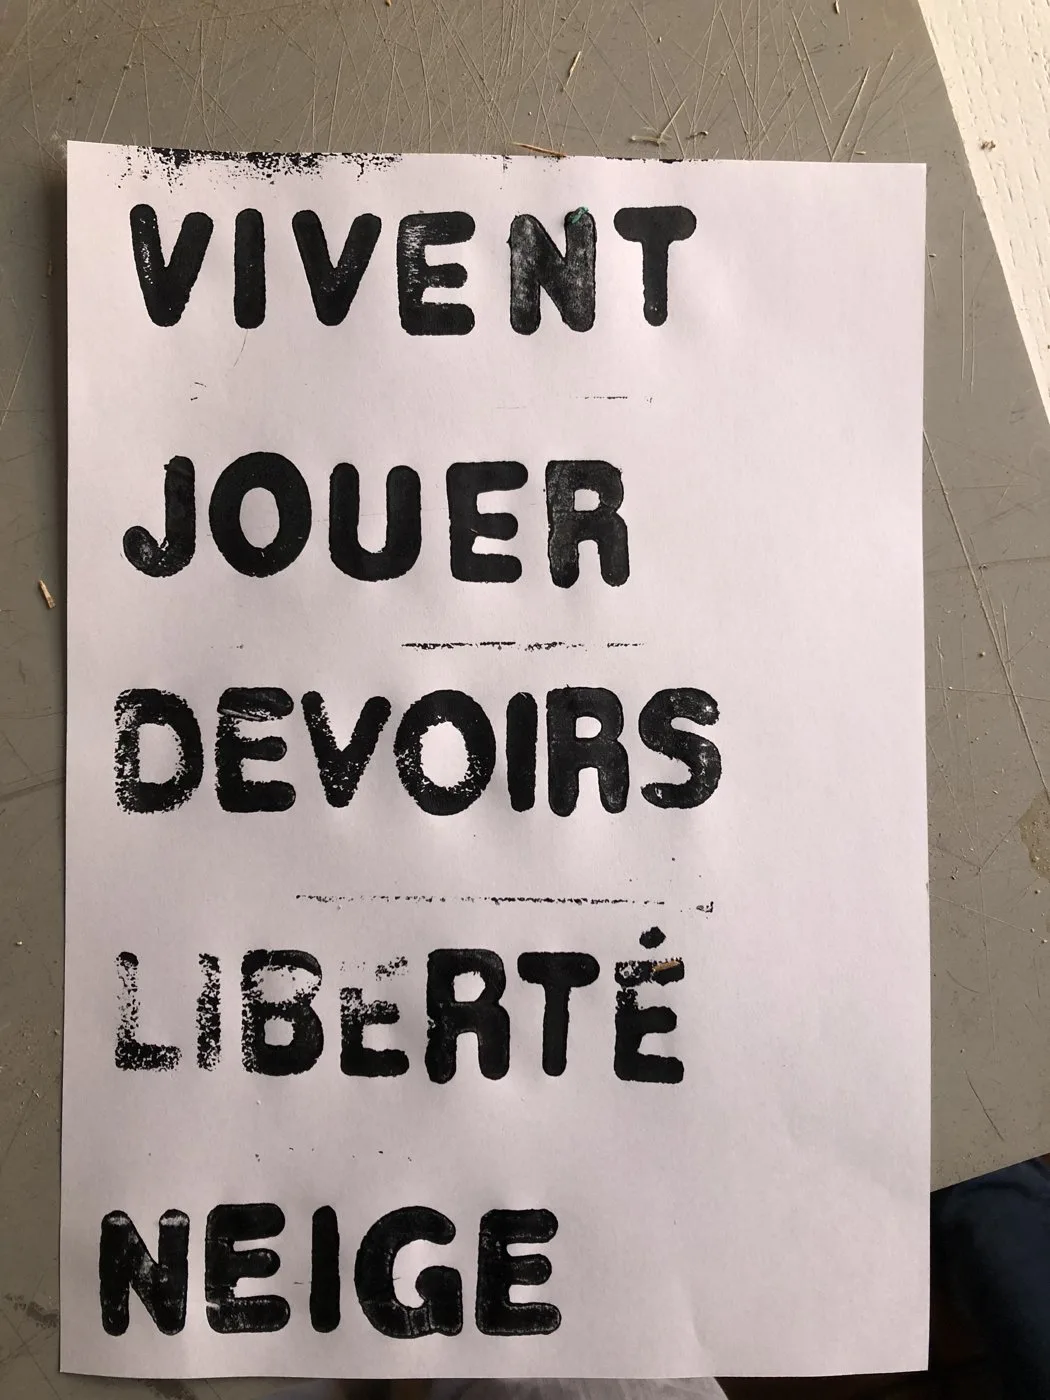 VIVENT
JOUER
DEVOIRS
LIBERTÉ
NEIGE